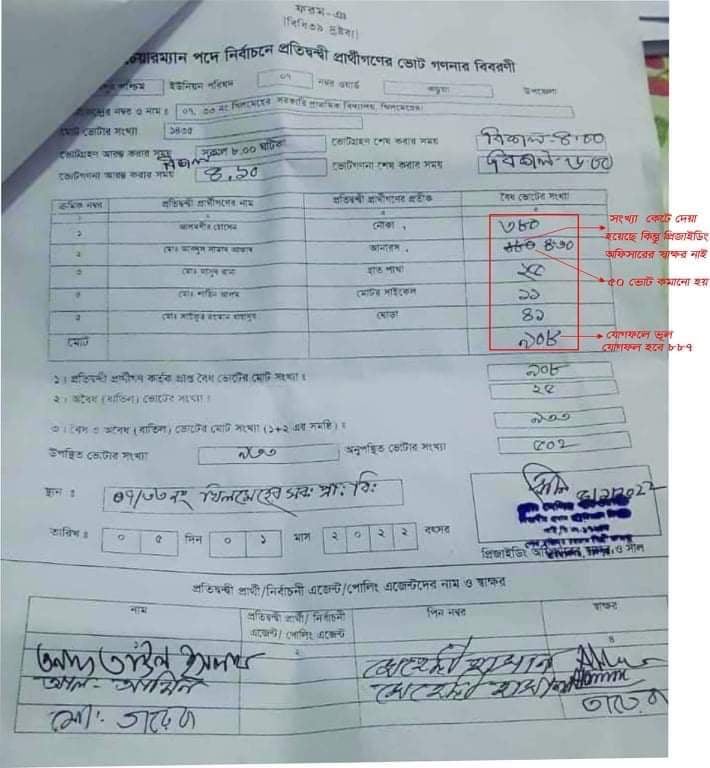 ফরম-ঞ
চেয়ারম্যান পদে নির্বাচনে প্রতিদ্বন্দ্বী প্রার্থীগণের ভোট গণনার বিবরণী
পশ্চিম ইউনিয়ন পরিষদ ০৭ নম্বর ওয়ার্ড কচুয়া উপজেলা
নম্বর ও নাম : ০৭, ৩৩ নং খিলমেহের সরকারি প্রাথমিক বিদ্যালয়, খিলমেহের।
মোট ভোটার সংখ্যা ১৪৩৫
ভোটগ্রহণ আরম্ভ করার সময় সকাল ৮.০০ ঘটিকা ভোটগ্রহণ শেষ করার সময় বিকাল-৪.০০
ভোটগণনা আরম্ভ করার সময় বিকাল ৪.১০ ভোটগণনা শেষ করার সময় বিকাল-৬.০০
ক্রমিক নম্বর প্রতিদ্বন্দ্বী প্রার্থীগণের নাম প্রতিদ্বন্দ্বী প্রার্থীগণের প্রতীক বৈধ ভোটের সংখ্যা
১ আলমগীর হোসেন নৌকা ৩৮০
২ আনারস ৪৩০
৩ মোঃ মাসুদ রানা হাত পাখা ২৫
৪ মোঃ শাহিন আলম মোটর সাইকেল ১১
৫ ঘোড়া ৪১
মোট ৯০৮
সংখ্যা কেটে দেয়া
হয়েছে কিন্তু প্রিজাইডিং
অফিসারের স্বাক্ষর নাই
৫০ ভোট কমানো হয়
যোগফলে ভুল
যোগফল হবে ৮৮৭
১। প্রতিদ্বন্দ্বী প্রার্থীগণ কর্তৃক প্রাপ্ত বৈধ ভোটের মোট সংখ্যা : ৯০৮
২। অবৈধ (বাতিল) ভোটের সংখ্যা : ২৫
৩। বৈধ ও অবৈধ (বাতিল) ভোটের মোট সংখ্যা (১+২ এর সমষ্টি) : ৯৩৩
উপস্থিত ভোটার সংখ্যা ৯৩৩ অনুপস্থিত ভোটার সংখ্যা ৫০২
স্থান : ০৭/৩৩নং খিলমেহের সরঃ প্রাঃ বিঃ
তারিখ : ০ ৫ দিন ০ ১ মাস ২ ০ ২ ২ বৎসর
প্রিজাইডিং ও সীল
প্রতিদ্বন্দ্বী প্রার্থী/নির্বাচনী এজেন্ট/পোলিং এজেন্টদের নাম ও স্বাক্ষর
নাম প্রতিদ্বন্দ্বী প্রার্থী/ নির্বাচনী এজেন্ট/ পোলিং এজেন্ট পিন নম্বর স্বাক্ষর
আল-আমিন মেহেদী হাসান
মোঃ তারেক তারেক